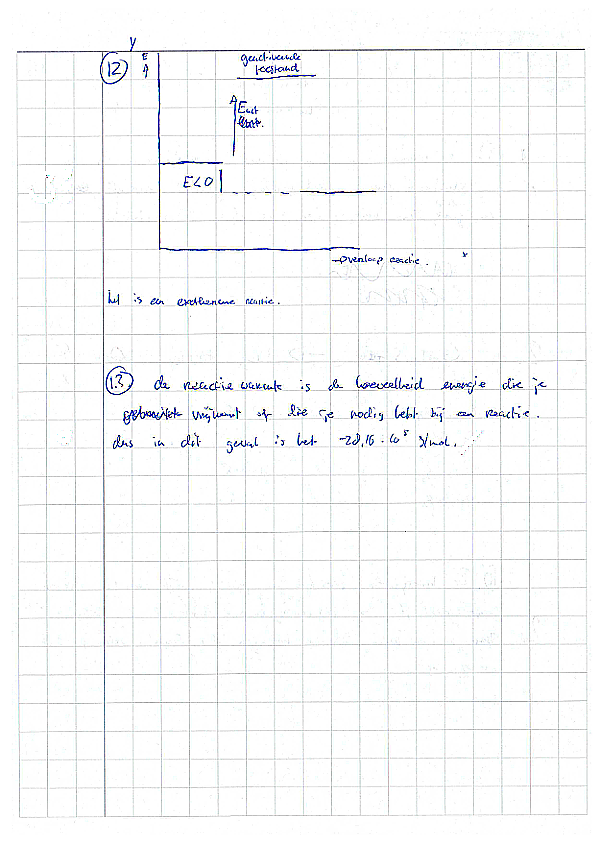 y
12
E
geactiveerde
toestand
Eact
E<0
overloop reactie.
x
het is een exotherme reactie.
13 de reactie warmte is de hoeveelheid energie die je
vrijkomt of die je nodig hebt bij een reactie.
dus in dit geval is het -28,16 · 10⁵ J/mol.